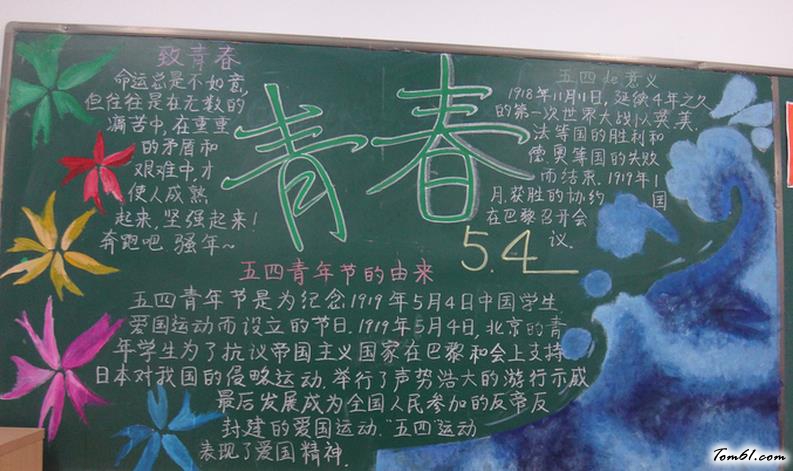 致青春
命运总是不如意,
但往往是在无数的
痛苦中,在重重
的矛盾和
艰难中,才
使人成熟
起来,坚强起来!
奔跑吧 强年~
青春
5.4
五四de意义
1918年11月11日,延续4年之久
的第一次世界大战以英、美、
法等国的胜利和
德、奥等国的失败
而结束.1919年1
月,获胜的协约国
在巴黎召开会
议.
五四青年节的由来
五四青年节是为纪念1919年5月4日中国学生
爱国运动而设立的节日.1919年5月4日,北京的青
年学生为了抗议帝国主义国家在巴黎和会上支持
日本对我国的侵略运动.举行了声势浩大的游行示威
最后发展成为全国人民参加的反帝反
封建的爱国运动."五四"运动
表现了爱国精神.
Tom61.com